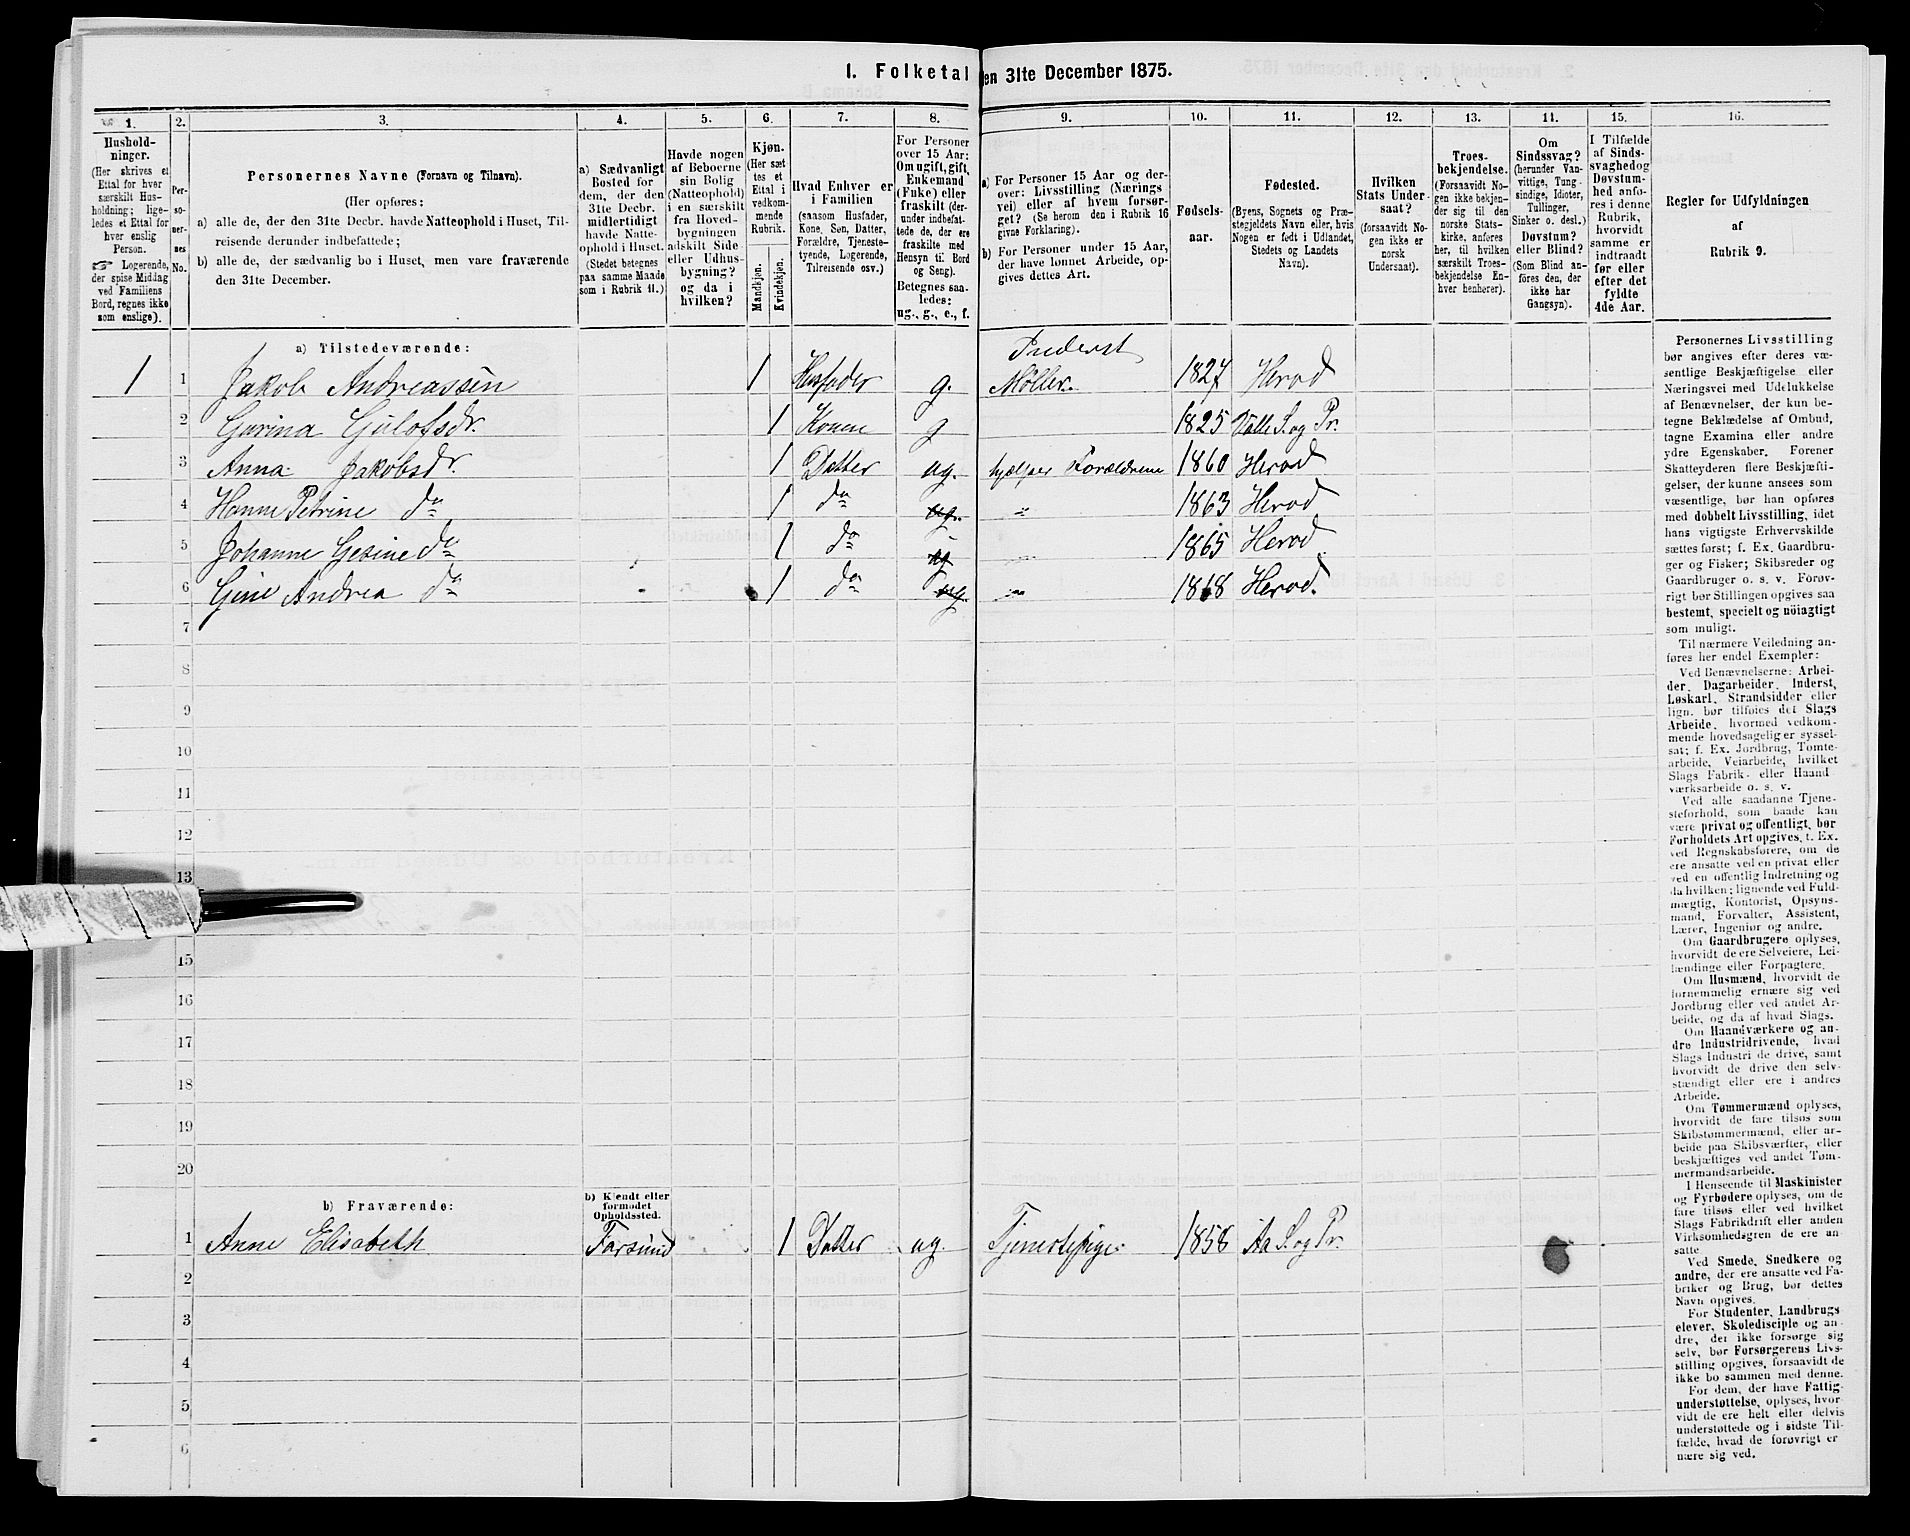 I. Folketal
den 31te December 1875.
1. 2. 3. 4. 5. 6. 7. 8. 9. 10. 11. 12. 13. 11. 15. 16.
Hushold-
ninger.
(Her skrives et
Ettal for hver
særskilt Hus-
holdning; lige-
ledes et Ettal for
hver enslig
Person.
☞ Logerende,
der spise Middag
ved Familiens
Bord, regnes ikke
som enslige).
Per-
so-
ner-
nes
No.
Personernes Navne (Fornavn og Tilnavn).
(Her opføres:
a) alle de, der den 31te Decbr. havde Natteophold i Huset, Til-
reisende derunder indbefattede;
b) alle de, der sædvanlig bo i Huset, men vare fraværende
den 31te December.
a) Sædvanligt
Bosted for
dem, der den
31te Decbr.
midlertidigt
havde Natte-
ophold i Huset.
(Stedet betegnes
paa samme Maade
som i Rubrik 11.)
Havde nogen
af Beboerne
sin Bolig
(Natteophold)
i en særskilt
fra Hoved-
bygningen
adskilt Side-
eller Udhus-
bygning?
og da i
hvilken?
Kjøn.
(Her sæt
tes et
Ettal i
vedkom-
mende
Rubrik.
Mandkjøn.
Kvindekjøn.
Hvad Enhver er
i Familien
(saasom Husfader,
Kone, Søn, Datter,
Forældre, Tjeneste-
tyende, Logerende,
Tilreisende osv.)
For Personer
over 15 Aar:
Om ugift, gift,
Enkemand
(Enke) eller
fraskilt (der-
under indbefat-
tede de, der ere
fraskilte med
Hensyn til Bord
og Seng).
Betegnes saa-
ledes:
ug., g., e., f.
a) For Personer 15 Aar og der-
over: Livsstilling (Nærings
vei) eller af hvem forsør-
get? (Se herom den i Rubrik 16
givne Forklaring).
b) For Personer under 15 Aar,
der have lønnet Arbeide, op-
gives dettes Art.
Fødsels-
aar.
Fødested.
(Byens, Sognets og Præ-
stegjeldets Navn eller, hvis
Nogen er født i Udlandet,
Stedets og Landets
Navn).
Hvilken
Stats Under-
saat?
(forsaavidt No-
gen ikke er
norsk
Undersaat).
Troes-
bekjendelse.
(Forsaavidt No-
gen ikke bekjen-
der sig til den
norske Stats-
kirke, anføres
her, til hvilken
særskilt Troes-
bekjendelse En-
hver henhører).
Om
Sindssvag?
(herunder Van-
vittige, Tung-
sindige, Idioter,
Tullinger,
Sinker o. desl.)
Døvstum?
eller Blind?
(Som Blind an-
føres den, der
ikke har
Gangsyn).
I Tilfælde
af Sinds-
svaghed og
Døvstum-
hed anfø-
res i denne
Rubrik,
hvorvidt
samme er
indtraadt
før eller
efter det
fyldte
4de Aar.
Regler for Udfyldningen
af
Rubrik 9.
a) Tilstedeværende:
Inderst
1 1 Jakob Andreassen 1 Husfader g. Møller. 1827 Herod
2 Gurina Gulofsdr. 1 Kone g 1825 Valle S. og Pr.
3 Anna Jakobsdr. 1 Datter ug. hjælper Forældrene 1860 Herod
4 Hanne Petrine do 1 do ug. " 1863 Herod
5 Johanne Gesine do 1 do ug " 1865 Herod
6 Gine Andrea do 1 do ug. " 1868 Herod.
7
8
9
10
11
12
13
15
16
17
18
19
20
b) Fraværende:
b) Kjendt eller
formodet
Opholdssted.
1 Anne Elisabeth Farsund 1 Datter ug. Tjenestepige 1858 Aa S. og Pr.
2
3
4
5
6
Personernes Livsstilling
bør angives efter deres væ-
sentlige Beskjæftigelse eller
Næringsvei med Udelukkelse
af Benævnelser, der kun be-
tegne Beklædelse af Ombud,
tagne Examina eller andre
ydre Egenskaber. Forener
Skatteyderen flere Beskjæfti-
gelser, der kunne ansees som
væsentlige, bør han opføres
med dobbelt Livsstilling, idet
hans vigtigste Erhvervskilde
sættes først; f. Ex. Gaardbru-
ger og Fisker; Skibsreder og
Gaardbruger o. s. v. Forøv-
rigt bør Stillingen opgives saa
bestemt, specielt og nöiagtigt
som muligt.
Til nærmere Veiledning an-
føres her endel Exempler:
Ved Benævnelserne: Arbei-
der, Dagarbeider, Inderst,
Løskarl, Strandsidder eller
lign. bør tilføies det Slags
Arbeide, hvormed vedkom-
mende hovedsagelig er syssel-
sat; f. Ex. Jordbrug, Tomte-
arbeide, Veiarbeide, hvilket
Slags Fabrik- eller Haand
værksarbeide o. s. v.
Ved alle saadanne Tjene-
steforhold, som baade kan
være privat og offentligt, bør
Forholdets Art opgives, t. Ex.
ved Regnskabsførere, om de
ere ansatte ved en privat eller
ved en offentlig Indretning og
da hvilken; lignende ved Fuld-
mægtig, Kontorist, Opsyns-
mand, Forvalter, Assistent,
Lærer, Ingeniør og andre.
Om Gaardbrugere oplyses,
hvorvidt de ere Selveiere, Lei-
lændinge eller Forpagtere.
Om Husmænd, hvorvidt de
fornemmelig ernære sig ved
Jordbrug eller ved andet Ar-
beide, og da af hvad Slags.
Om Haandværkere og an-
dre Industridrivende, hvad
Slags Industri de drive, samt
hvorvidt de drive den selv-
stændigt eller ere i andres
Arbeide.
Om Tømmermænd oplyses,
hvorvidt de fare tilsøs som
Skibstømmermænd, eller ar-
beide paa Skibsværfter, eller
beskjæftiges ved andet Tøm-
mermandsarbeide.
I Henseende til Maskinister
og Fyrbødere oplyses, om de
fare tilsøs eller ved hvilket
Slags Fabrikdrift eller anden
Virksomhedsgren de ere an-
satte
Ved Smede, Snedkere og
andre, der ere ansatte ved Fa-
briker og Brug, bør dettes
Navn opgives.
For Studenter, Landbrugs
elever, Skoledisciple og an-
dre, der ikke forsørge sig
selv, bør Forsørgerens Livs-
stilling opgives, forsaavidt de
ikke bo sammen med denne.
For dem, der have Fattig-
understøttelse, oplyses, hvor-
vidt de ere helt eller delvis
understøttede og i sidste Til-
fælde, hvad de forøvrigt er
nære sig ved.